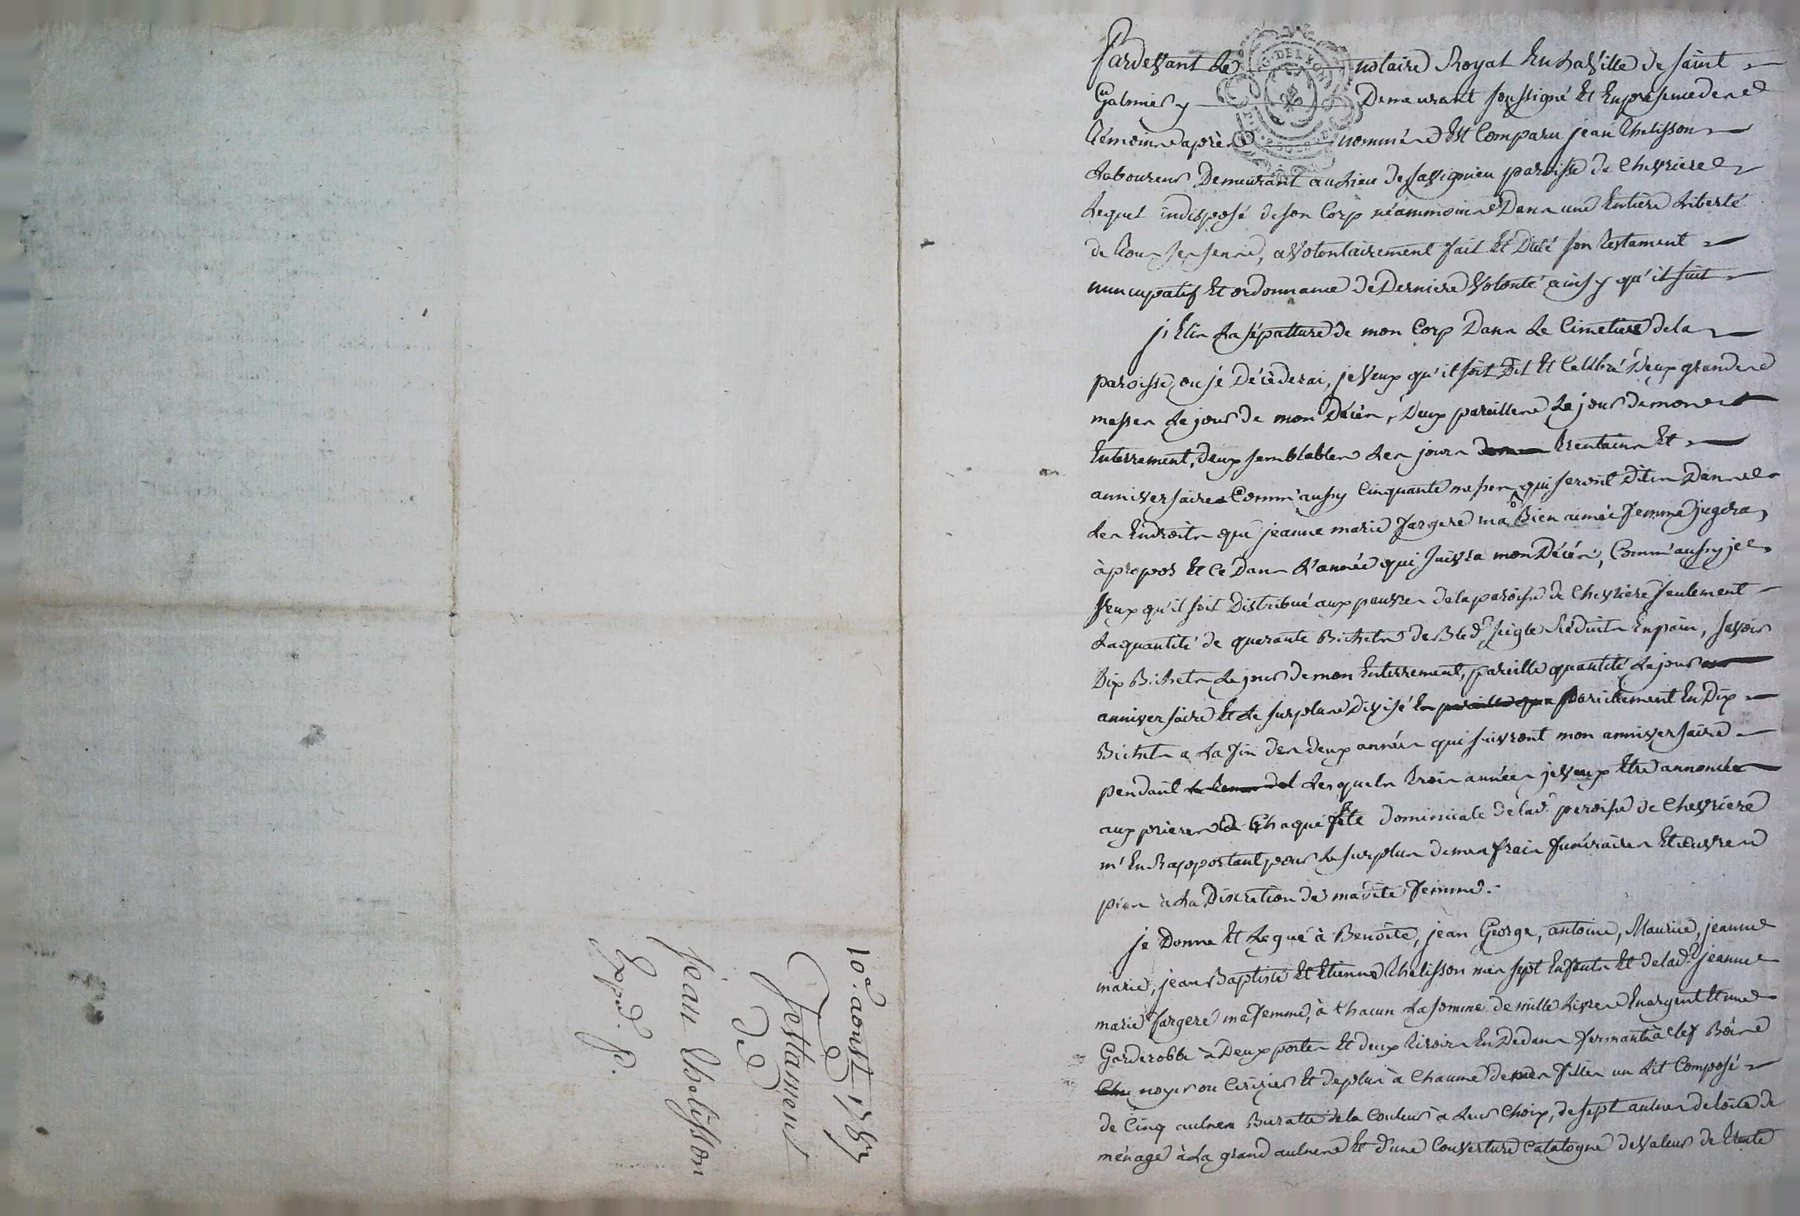 10e. aoust 1787
Testament
de
Jean Thelisson
Expd. P.
Pardevant Le notaire Royal En La Ville de saint
Galmier y Demeurant soussigné Et En presence des
témoins après nommés Est Comparu jean thelisson
Laboureur Demeurant au Lieu de Savignieu paroisse de Chevrieres
Lequel indisposé de son Corp néammoins Dans une Entière Liberté
de tous ses sens, a Volontairement fait Et Dicté son testament
nuncupatif Et ordonnance de Derniere Volonté ainsy qu'il suit
j'Elis La sépulture de mon Corp Dans Le Cimetiere de la
paroisse ou je Décèderai, je Veux qu'il soit Dit Et Celébré Deux grandes
messes Le jour de mon Décès, Deux pareilles Le jour de mon
Enterrement, deux semblables Les jours trentain Et
anniversaire Comm'aussy Cinquante messes qui seront Dites Dans
Les Endroits que jeanne marie fargere ma Bien aimée femme jugera
à propos Et Ce Dans L'année qui suivra mon Décès, Comm'aussy je
Veux qu'il soit Distribué aux pauvres de la paroisse de Chevriere seulement
La quantité de quarante Bichets de Bled seigle Réduits En pain, savoir
Dix Bichets Le jour de mon Enterrement, pareille quantité Le jour
anniversaire Et Le surplus Divisé pareillement En Dix
Bichets a La fin des deux années qui suivront mon anniversaire
pendant Lesquels trois années je Veux Etre annoncé
aux prieres de Chaque fête dominicale de lad. paroisse de Chevriere
m'En Rapportant pour Le surplus de mes frais funéraires Et œuvres
pies à La Discretion de madite femme.
je Donne Et Legue à Benoite, jean George, antoine, Maurice, jeanne
marie, jean Baptiste Et Etienne thelisson mes sept Enfants Et de lad. jeanne
marie fargere ma femme, à Chacun La somme de mille Livres En argent Et une
Garderobbe à Deux portes Et deux tiroirs En Dedans fermant à Clef Bois
noyer ou Cerisier Et de plus à Chacune de mes filles un Lit Composé
de Cinq aulnes Buratte de la Couleur a Leur Choix, de sept aulnes de toile de
ménage à La grand aulne Et d'une Couverture Catalogne de Valeur de trente